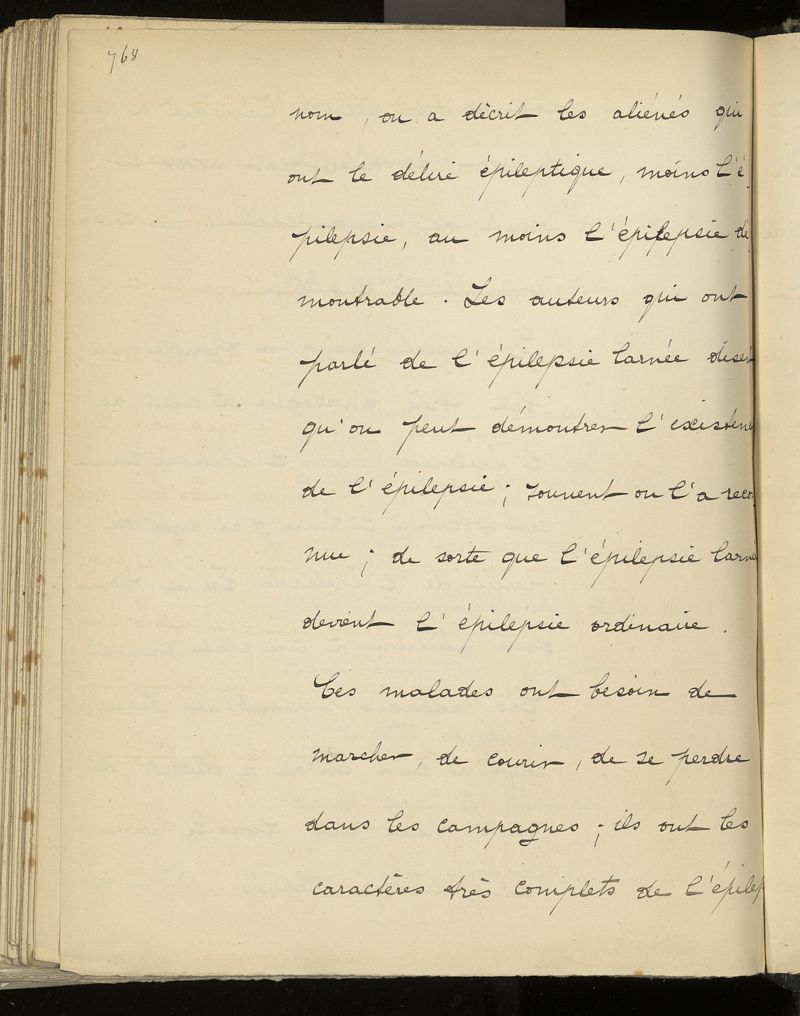 768
nom, on a décrit les aliénés qui
ont le délire épileptique, moins l'é-
pilepsie, au moins l'épilepsie dé
montrable. Les auteurs qui ont
parlé de l'épilepsie larvée disen
qu'on peut démontrer l'existen
de l'épilepsie ; souvent on l'a recon
nue ; de sorte que l'épilepsie larvé
devient l'épilepsie ordinaire.
Ces malades ont besoin de
marcher, de courir, de se perdre
dans les campagnes ; ils ont les
caractères très complets de l'épilep